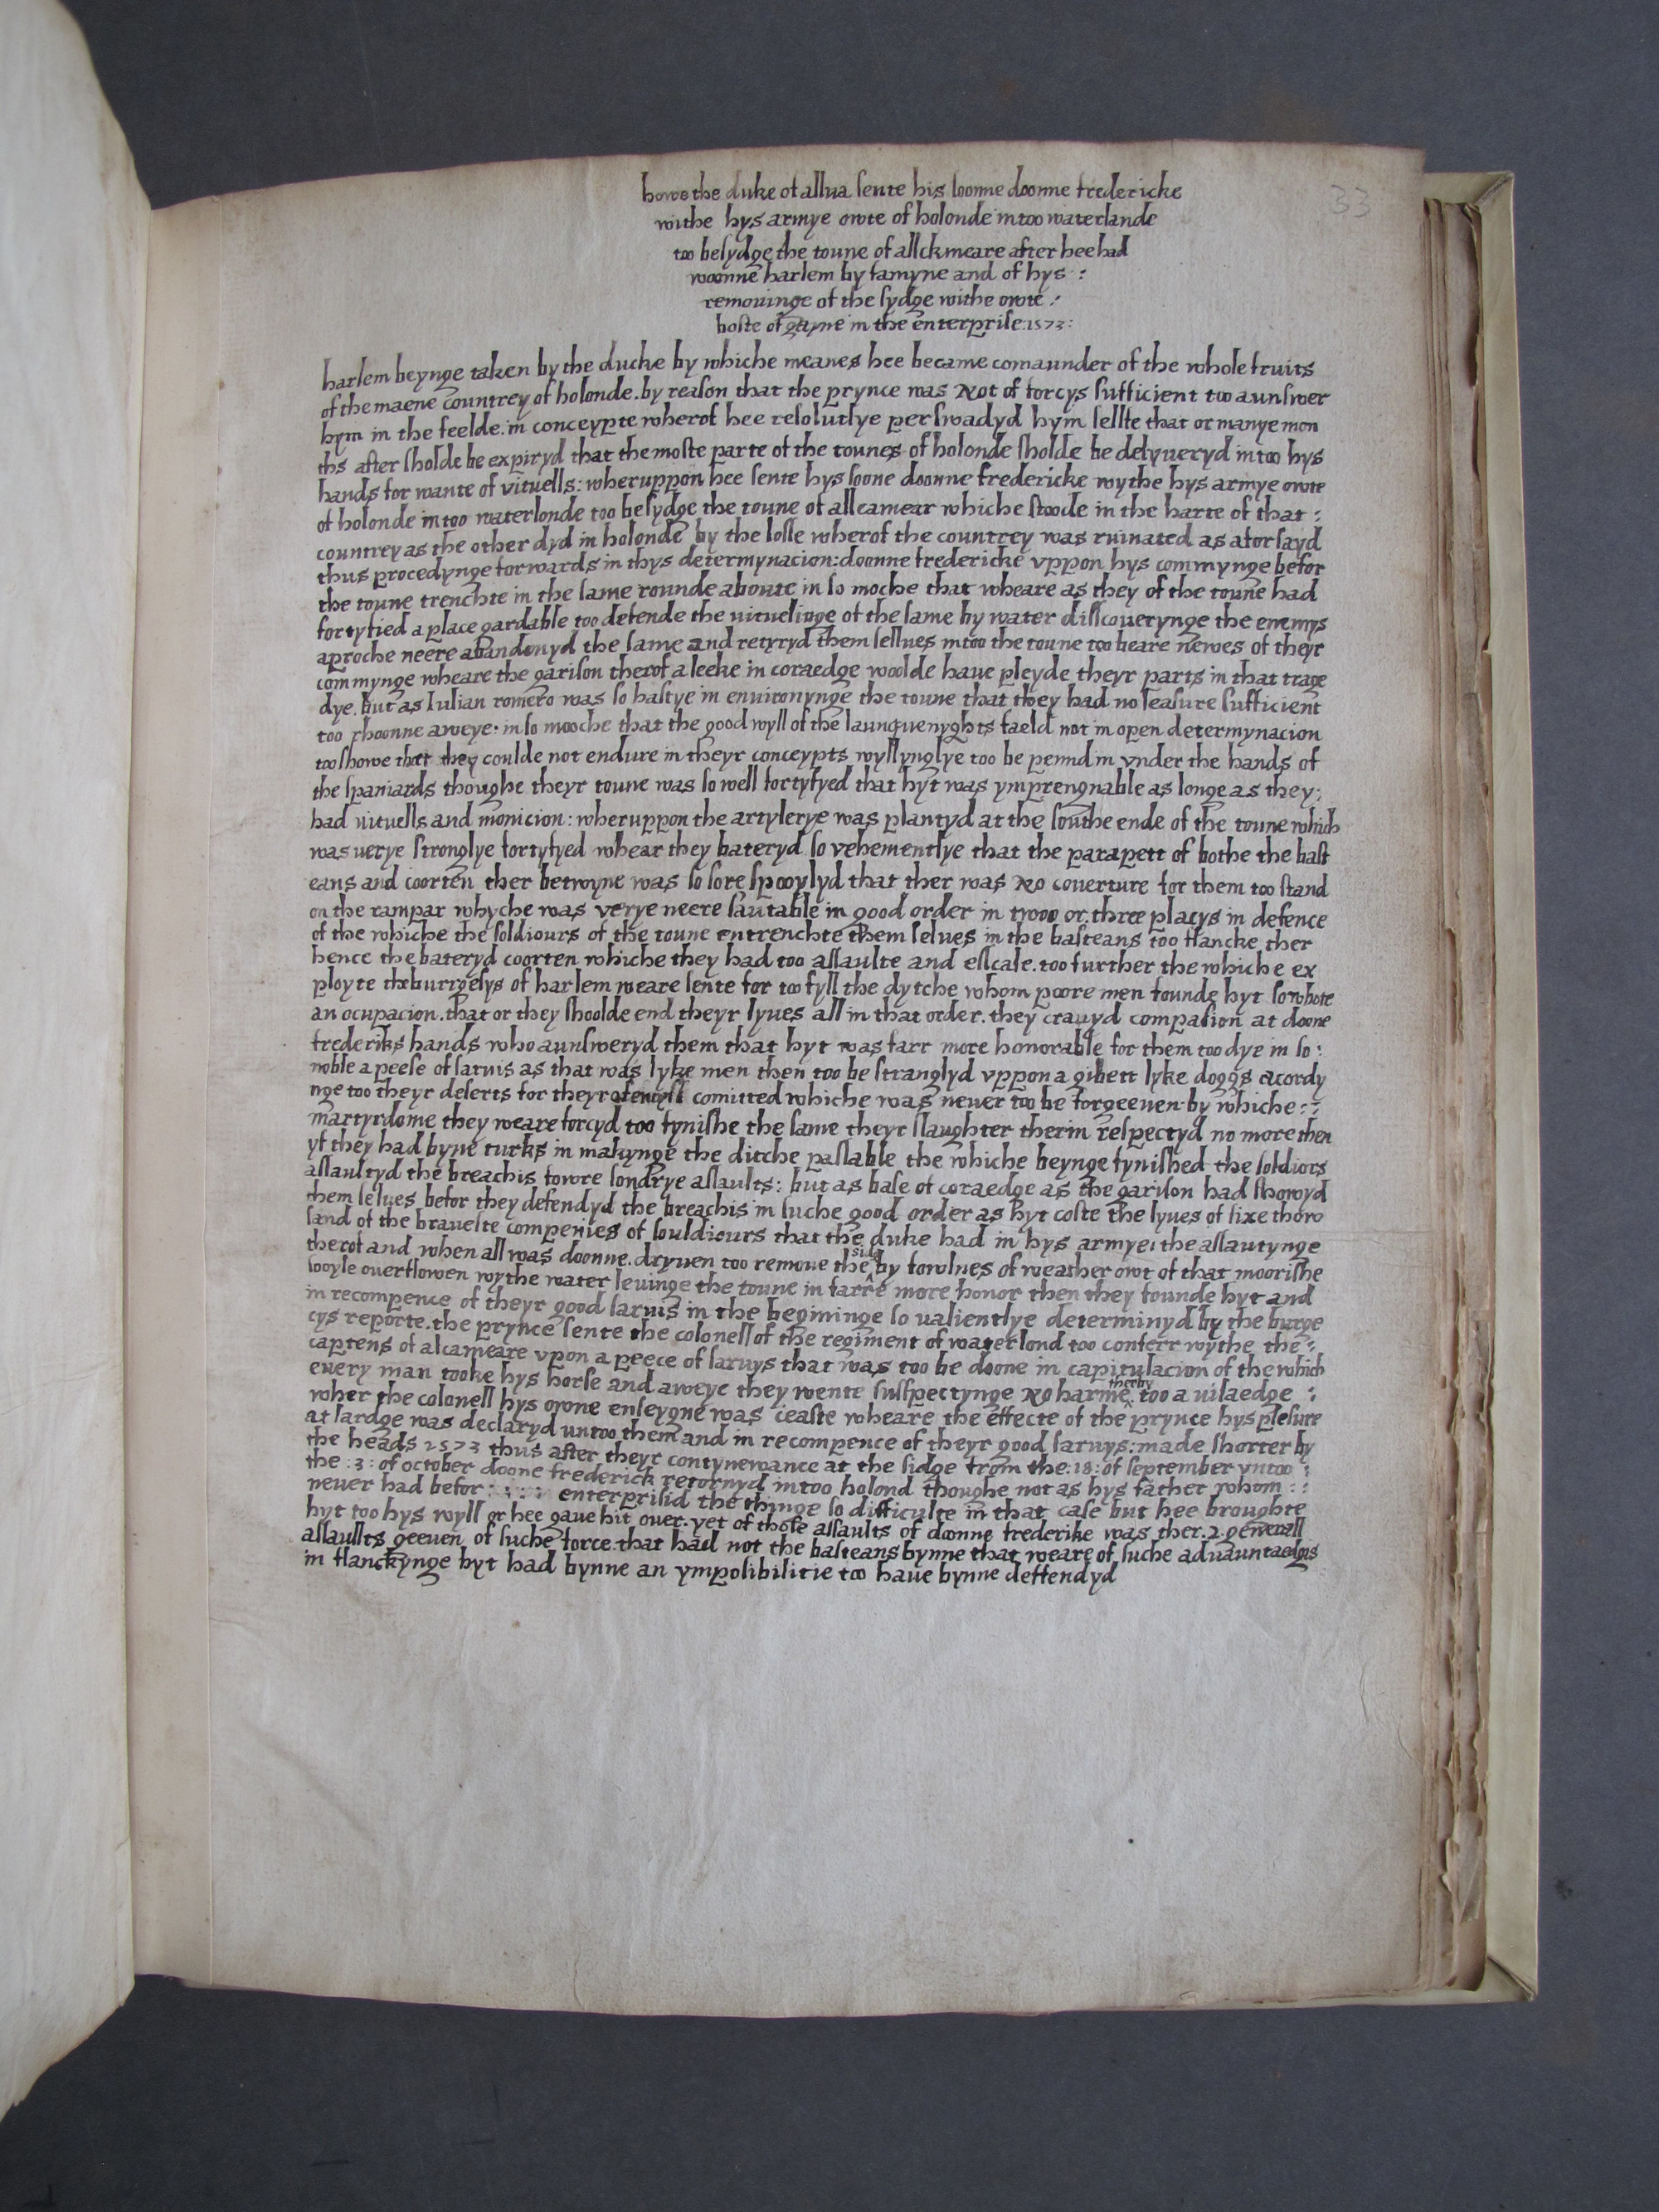 33
howe the duke of allva sente his soonne doonne fredericke
withe hys armye owte of holonde in too waterlande
too besydge the toune of allckmeare after hee had
woonne harlem by famyne and of hys :
removinge of the sydge withe owte :
boste of gayne in the enterprise 1573:
harlem beynge taken by the ducke by whiche meanes hee became comaunder of the whole fruits
of the maene countrey of holonde. by reason that the prynce was Not of forcys sufficient too aunswer
hym in the feelde. in conceypte wherof hee resolutlye perswadyd hym sellfe that or manye mon
ths after sholde be expiryd that the moste parte of the tounes of holonde sholde be delyueryd in too hys
hands for wante of vituells: wheruppon hee sente hys soone doonne fredericke wythe hys armye owte
of holonde in too waterlonde too besydge the toune of allcamear whiche stoode in the harte of that :
countrey as the other dyd in holonde by the losse wherof the countrey was ruinated as aforsayd
thus procedynge forwards in thys determynacion: doonne fredericke vppon hys commynge befor
the toune trenchte in the same rounde aboute in so moche that wheare as they of the toune had
fortyfied a place gardable too defende the vituelinge of the same by water disscouerynge the enemys
aproche neere abandonyd the same and retyryd them sellues in too the toune too beare newes of theyr
commynge wheare the garison therof aleeke in coraedge woolde haue pleyde theyr parts in that trage
dye. but as Iulian romero was so hastye in environynge the toune that they had no leasure sufficient
too rhoonne aweye. in so mooche that the good wyll of the launquenyghts faeld not in open determynacion
too showe that they coulde not endure in theyr conceypts wyllynglye too be pennd in vnder the hands of
the spaniards thoughe theyr toune was so well fortyfyed that hyt was ymprengnable as longe as they;
had vituells and monicion: wheruppon the artylerye was plantyd at the southe ende of the toune which
was uerye stronglye fortyfyed whear they bateryd so vehementlye that the parapett of bothe the bast
eans and coorten ther betwyne was so sore spooylyd that ther was No couerture for them too stand
on the rampar whyche was verye neere sautable in good order in twoo or three placys in defence
of the whiche the soldiours of the toune entrenchte them selues in the basteans too flancke ther
hence the bateryd coorten whiche they had too assaulte and escale. too further the whiche ex
ployte the burgesys of harlem weare sente for too fyll the dytche whom poore men founde hyt so whote
an ocupacion. that or they shoolde end theyr lyues all in that order. they crauyd compasion at doone
frederiks hands who aunsweryd them that hyt was farr more honorable for them too dye in so :
noble a peese of saruis as that was lyke men then too be stranglyd vppon a gibett lyke doggs acordy
nge too theyr deserts for theyr comitted whiche was neuer too be forgeeuen. by whiche : :
martyrdome they weare forcyd too fynishe the same theyr slaughter therin respectyd no more then
yf they had byne turks in makynge the ditche passable the whiche beynge fynished the soldiors
assaultyd the breachis fowre sondrye assaults: but as base of coraedge as the garison had showyd
them selues befor they defendyd the breachis in suche good order as hyt coste the lyues of sixe thow
sand of the braueste compenies of souldiours that the duke had in hys armye: the assautynge
therof and when all was doonne. dryuen too remoue the ^sidg by fowlnes of weather owt of that moorishe
sooyle ouerflowen wythe water leuinge the toune in farre more honor then they founde hyt and
in recompence of theyr good saruis in the begininge so ualientlye determinyd by the burge
cys reporte. the prynce sente the colonell of the regiment of waterlond too conferr wythe the :
captens of alcameare vpon a peece of saruys that was too be doone in capitulacion of the which
euery man tooke hys horse and aweye they wente susspectynge No harme ^therby too a uilaedge :
wher the colonell hys owne enseygne was ceaste wheare the effecte of the prynce hys plesure
at lardge was declaryd untoo them and in recompence of theyr good saruys: made shorter by
the heads 1573 thus after theyr contynewance at the sidge from the :18: of september vntoo :
the :3: of october doone frederick retornyd in too holond thoughe not as hys father whom : :
neuer had befor enterprisid the thinge so difficulte in that case but hee broughte
hyt too hys wyll or hee gaue hit ouer. yet of those assaults of doonne frederike was ther .2. generall
assaults geeuen of suche force. that had not the basteans bynne that weare of suche aduauntaedgis
in flanckynge hyt had bynne an ymposibilitie too haue bynne deffendyd